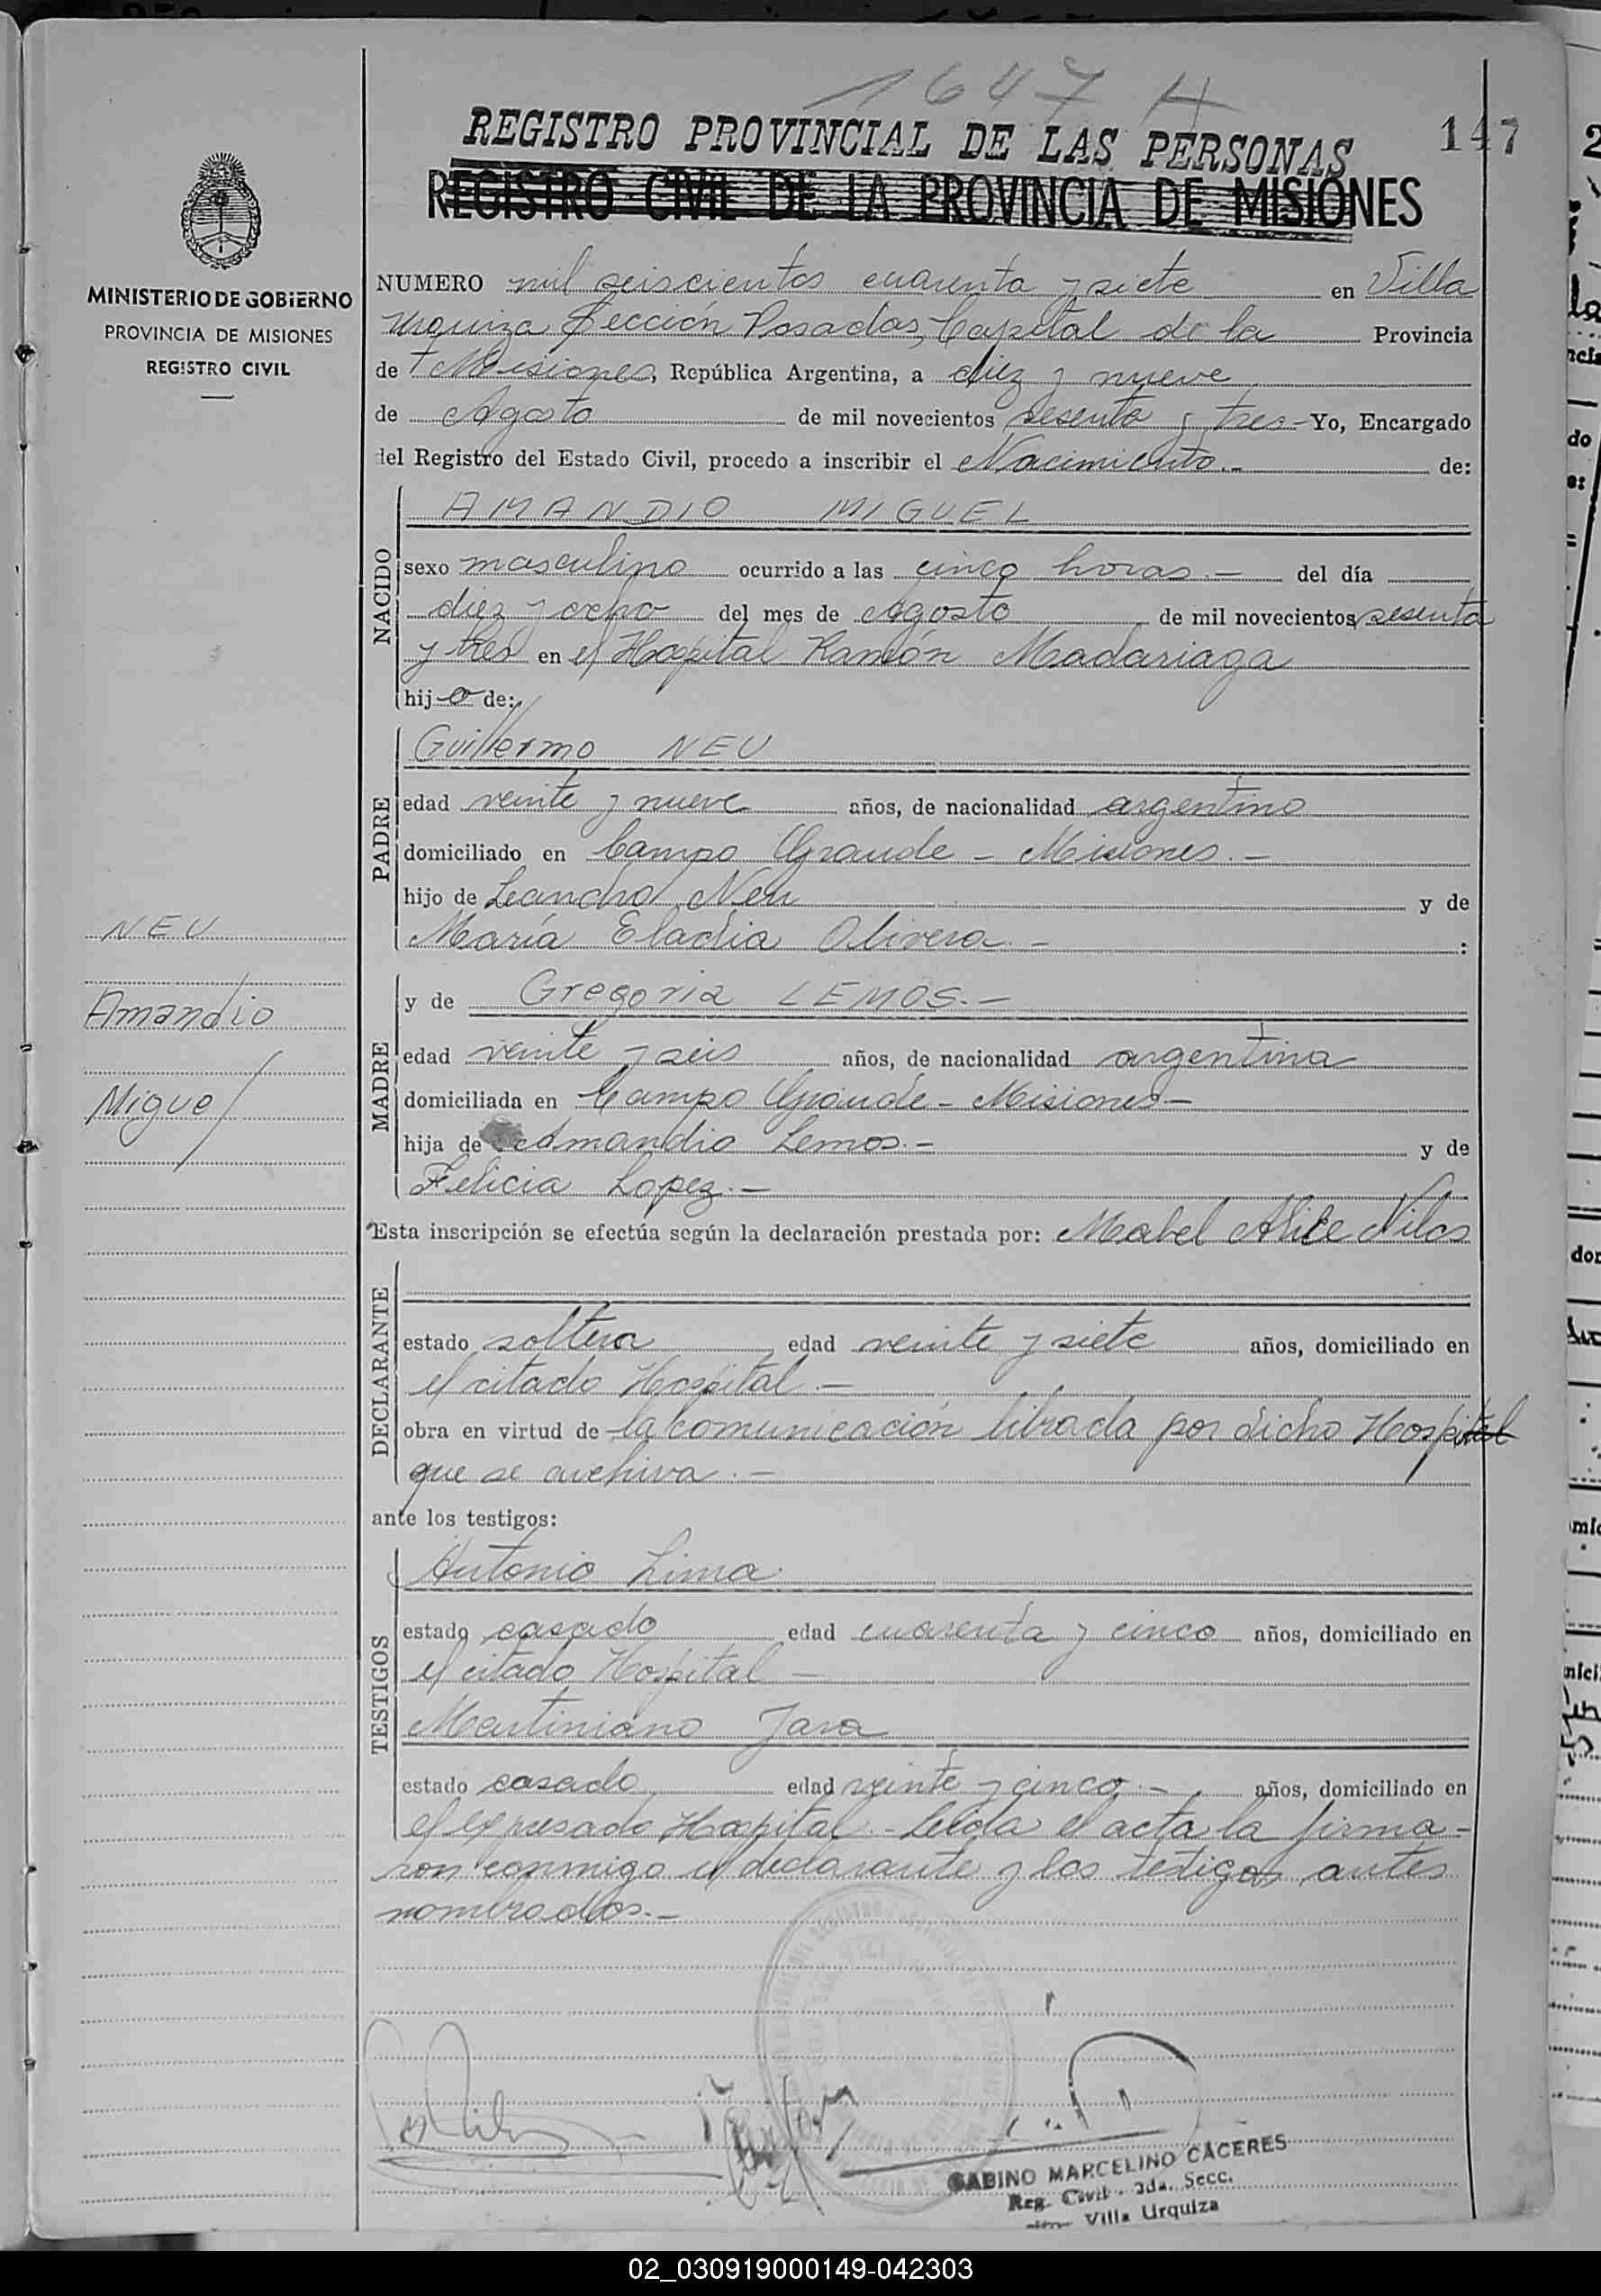 1647 H
REGISTRO PROVINCIAL DE LAS PERSONAS
147
REGISTRO CIVIL DE LA PROVINCIA DE MISIONES
MINISTERIO DE GOBIERNO
PROVINCIA DE MISIONES
REGISTRO CIVIL
NUMERO mil seiscientos cuarenta y siete en Villa
Urquiza Sección Posadas, Capital de la Provincia
de Misiones, República Argentina, a diez y nueve
de Agosto de mil novecientos sesenta y tres - Yo, Encargado
del Registro del Estado Civil, procedo a inscribir el Nacimiento.- de:
NACIDO
AMANDIO MIGUEL
sexo masculino ocurrido a las cinco horas.- del día
diez y ocho del mes de Agosto de mil novecientos sesenta
y tres en el Hospital Ramón Madariaga
hijo de:
PADRE
Guillermo NEU
edad veinte y nueve años, de nacionalidad argentino
domiciliado en Campo Grande - Misiones.-
hijo de Leandro Neu y de
María Eladia Olivera.- :
NEU
Amandio
Miguel
MADRE
y de Gregoria LEMOS.-
edad veinte y seis años, de nacionalidad argentina
domiciliada en Campo Grande - Misiones-
hija de Amandio Lemos.- y de
Felicia Lopez.-
Esta inscripción se efectúa según la declaración prestada por: Mabel Alice
DECLARANTE
estado soltera edad veinte y siete años, domiciliado en
el citado Hospital.-
obra en virtud de la comunicación librada por dicho Hospital
que se archiva.-
ante los testigos:
TESTIGOS
Antonio Lima
estado casado edad cuarenta y cinco años, domiciliado en
el citado Hospital -
Martiniano Jara
estado casado edad veinte y cinco.- años, domiciliado en
el expresado Hospital.- Leida el acta la firma-
ron conmigo el declarante y los testigos antes
nombrados.-
GABINO MARCELINO CACERES
Reg. Civil - 2da. Secc.
Villa Urquiza
02_030919000149-042303